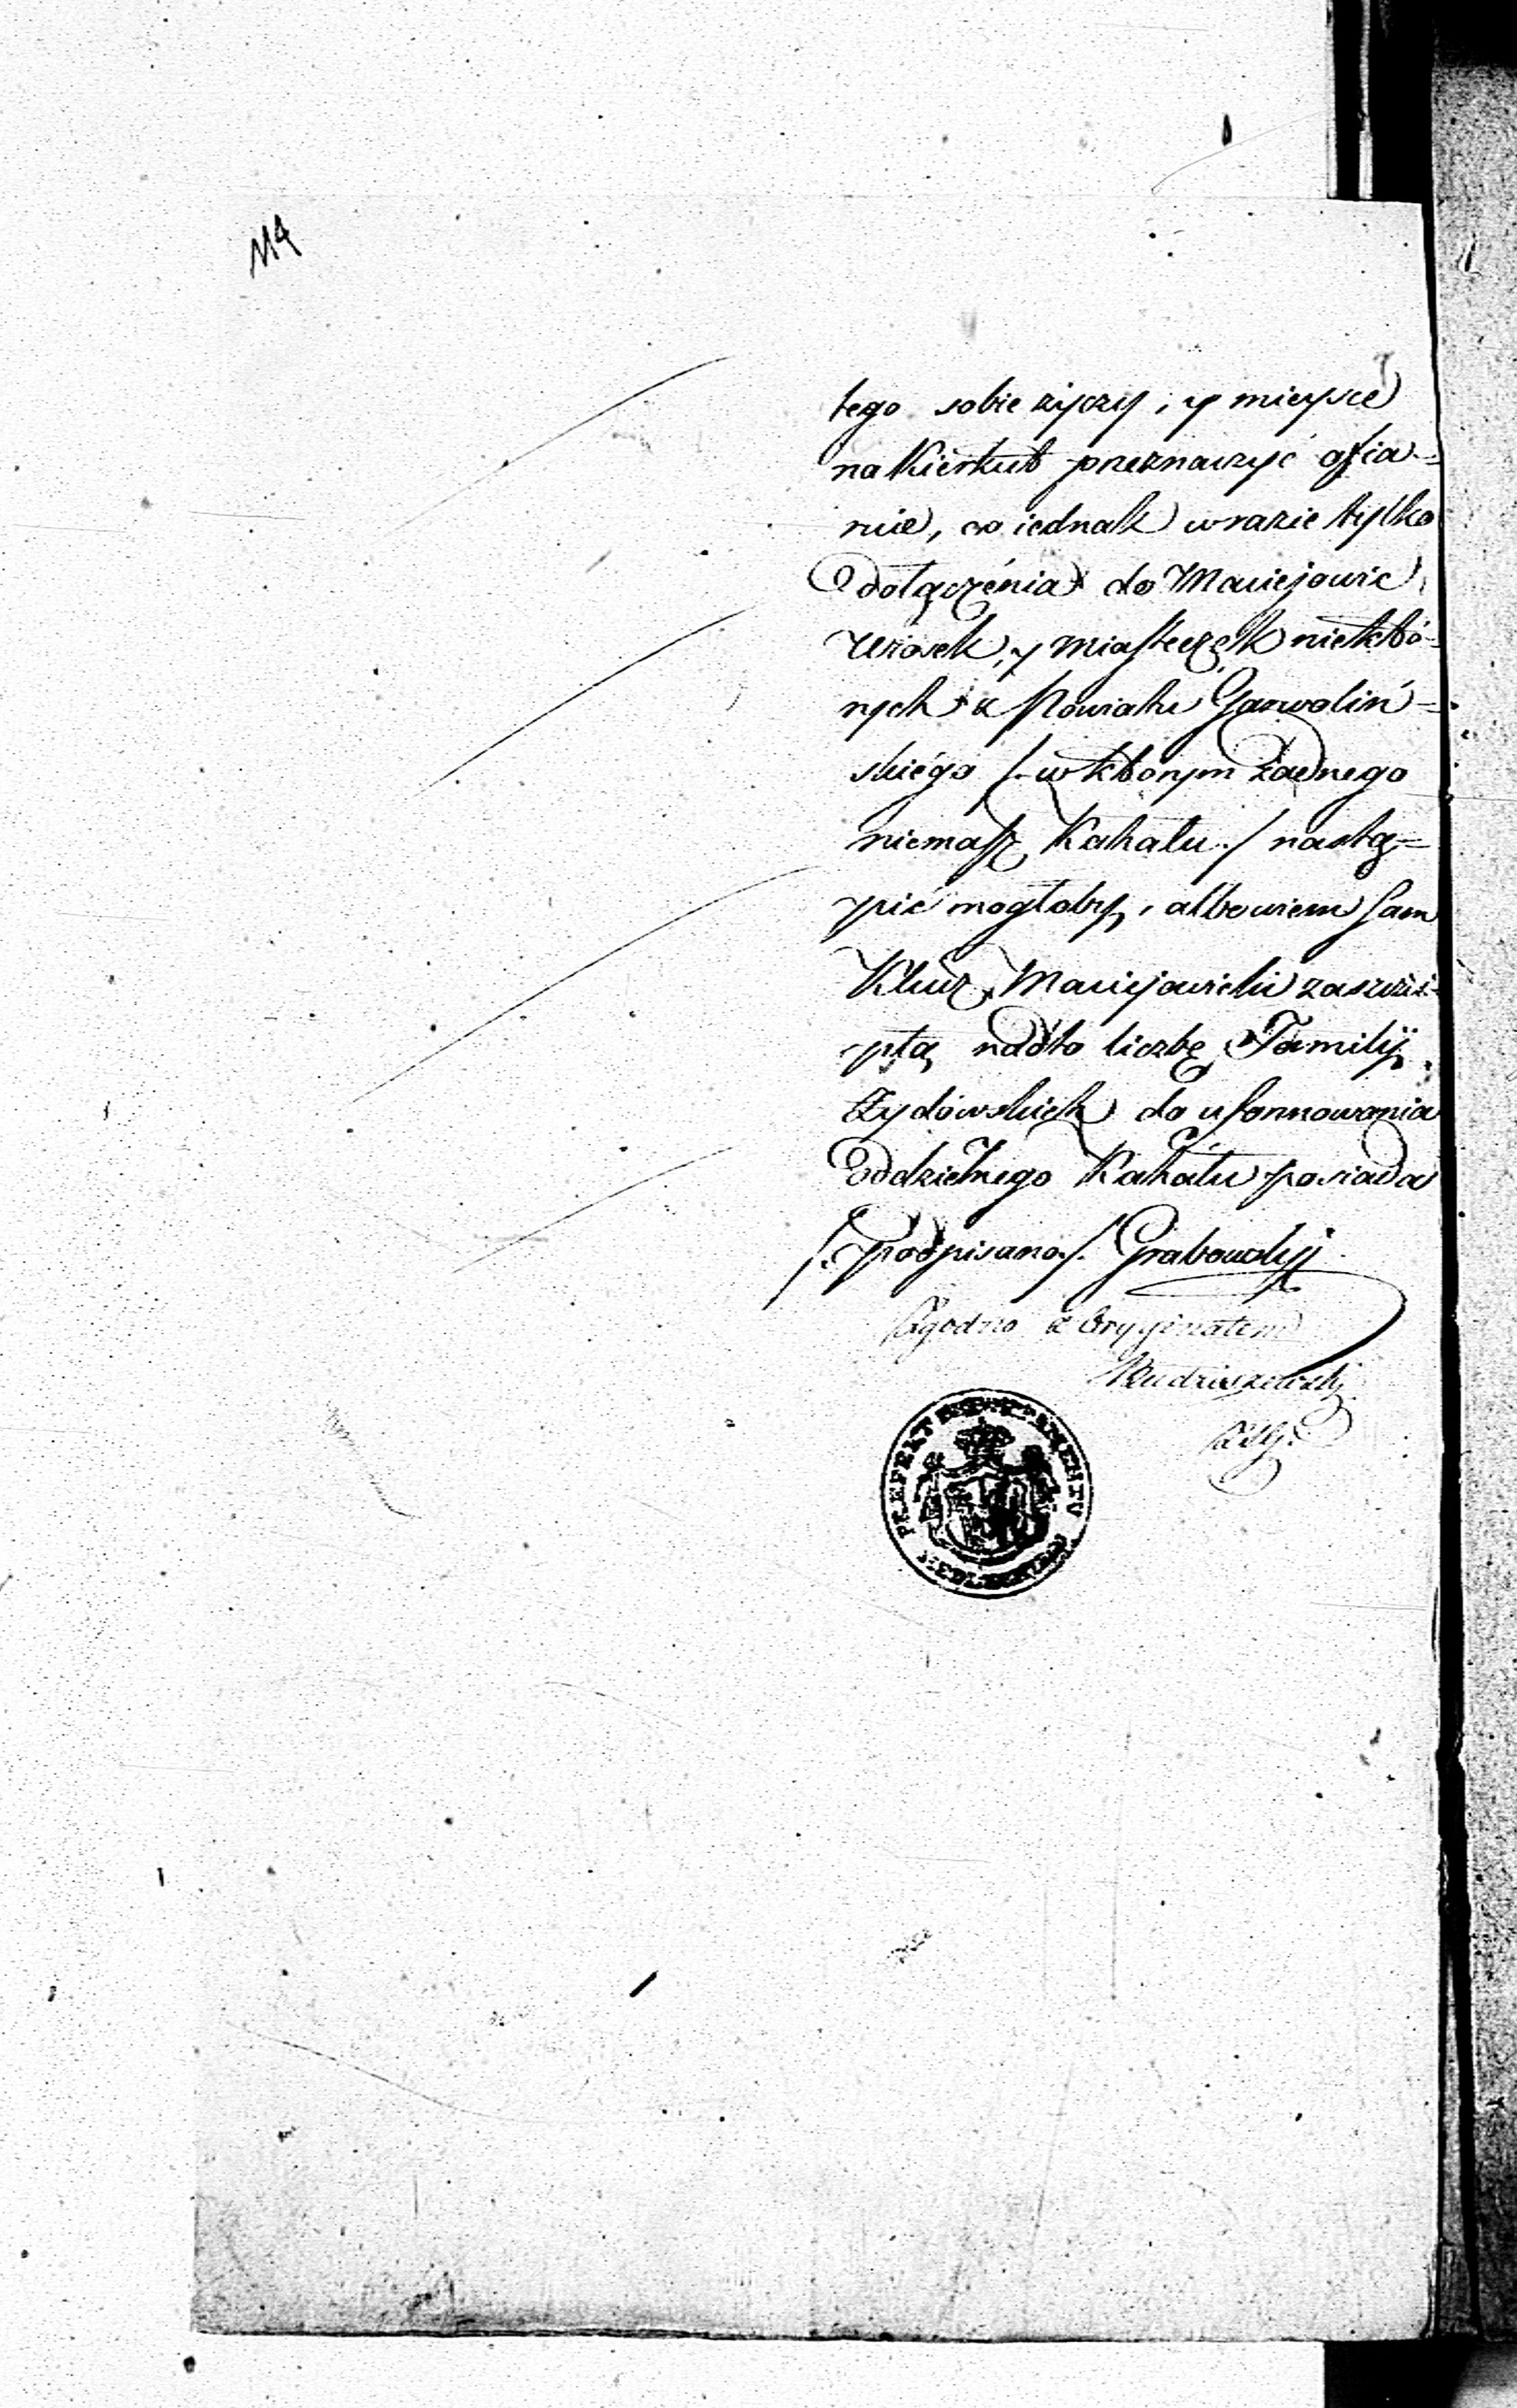 114
tego sobie życzy, y mieysce
na Kierkut przeznaczyć ofia=
ruie, co iednak w razie tylko
dołączénia do Maciejowic
Wiosek, y Miasteczek niektó-
rych z Powiatu Garwoliń=
skiégo /. w którym żadnego
niemasz Kahału ./ nastą=
pić mogłoby, albowiem sam
Klucz Maciejowicki zaszczu-
płą nadto liczbę Familij
Żydówskich do uformowania
Oddzielnego Kahału posiada
/. podpisano ./ Grabowskij
Zgodno z Oryginałem
PREFEKT DEPARTAMENTU
SIEDLECKIEGO